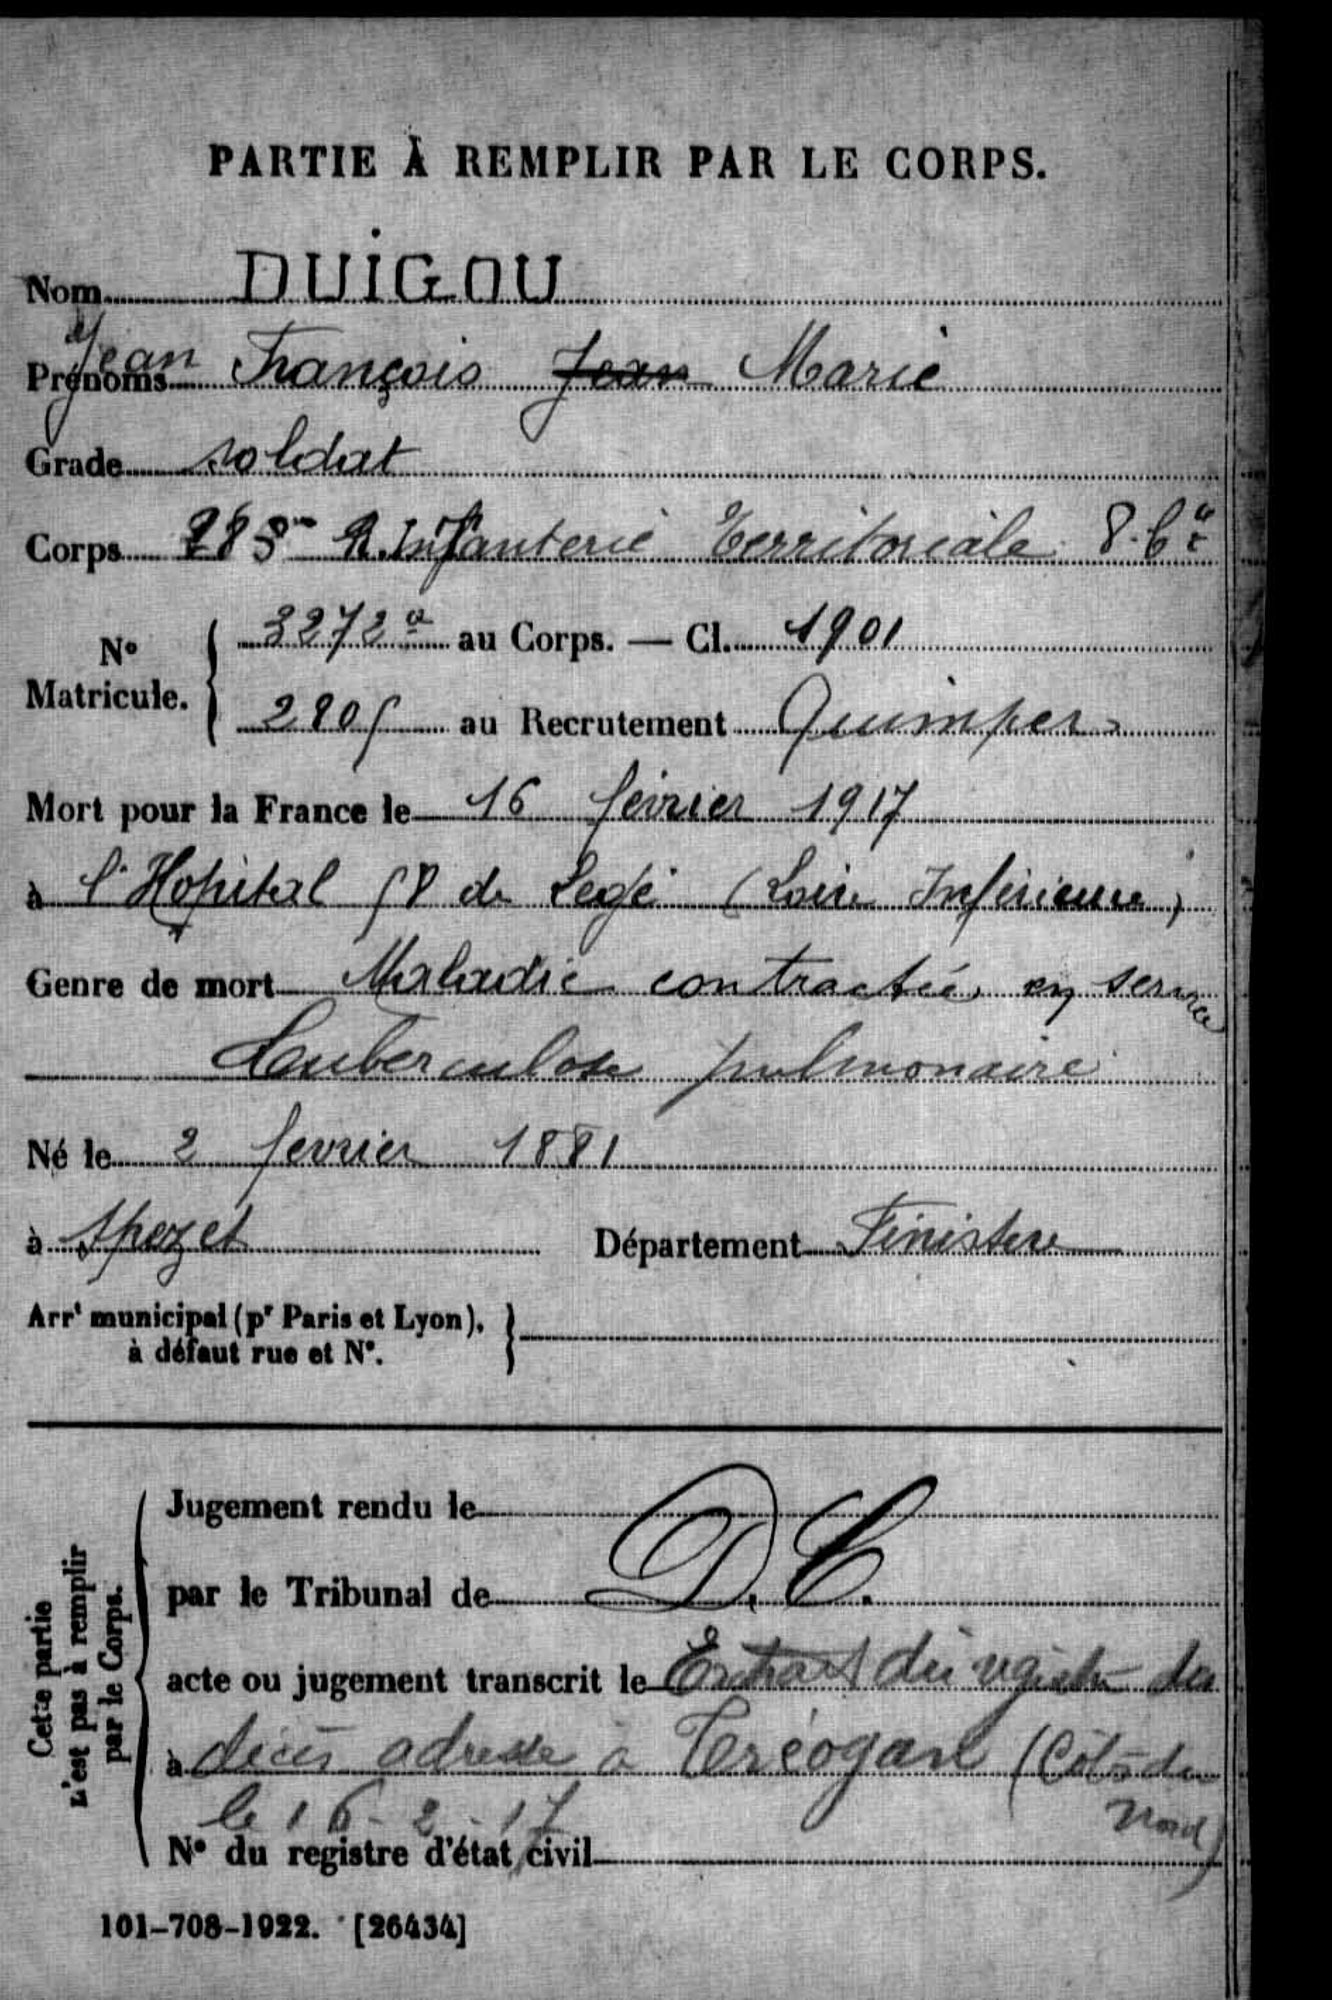 PARTIE À REMPLIR PAR LE CORPS.
Nom DUIGOU
Prénoms Jean François Jean Marie
Grade soldat
Corps R. Infanterie Territoriale 8. Cie
N° Matricule. 3272 au Corps. — Cl. 1901
2805 au Recrutement Quimper
Mort pour la France le 16 février 1917
à l'Hopital 58 de Legé (Loire Inférieure)
Genre de mort Maladie contractée en service
Tuberculose pulmonaire
Né le 2 fevrier 1881
à Spezet Département Finistere
Arrt municipal (pr Paris et Lyon), à défaut rue et N°.
Cette partie n'est pas à remplir par le Corps.
Jugement rendu le
par le Tribunal de D. C.
acte ou jugement transcrit le Extrait du registre des
à décès adressé à Tréogan (Côtes du Nord)
le 16-2-17
N° du registre d'état civil
101-708-1922. [26434]